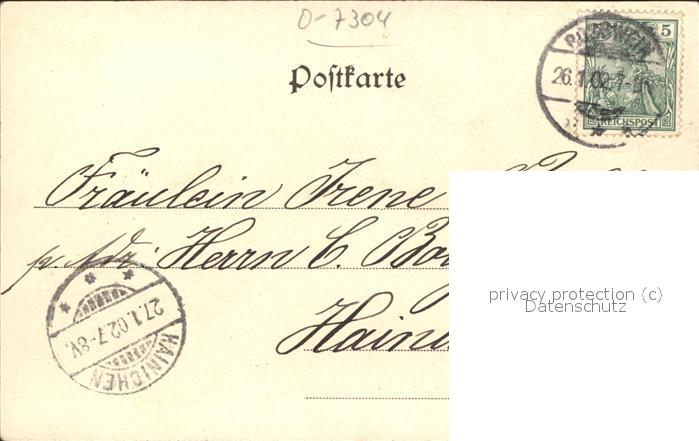 D-7304
Postkarte
26.1.02.7-8N.
5
REICHSPOST
Fräulein Irene
p. Adr. Herrn C.
27.1.02.7-8V.
HAINICHEN
privacy protection (c)
Datenschutz